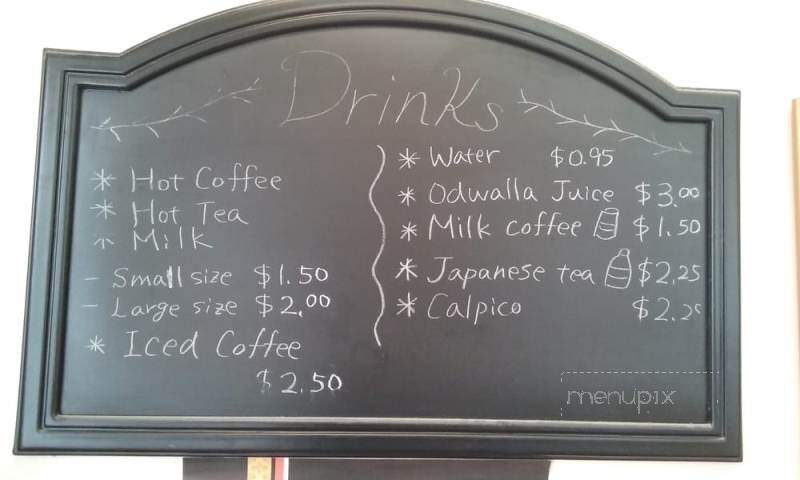 Drinks
* Hot Coffee
* Hot Tea
* Milk
- Small size $1.50
- Large size $2.00
* Iced Coffee
$2.50
* Water $0.95
* Odwalla Juice $3.00
* Milk coffee $1.50
* Japanese tea $2.25
* Calpico $2.25
menupix